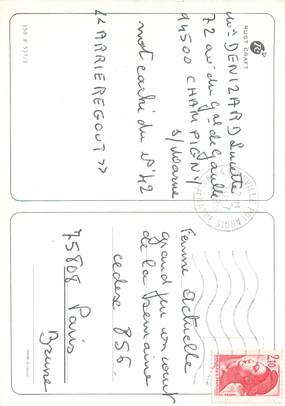 150 F 537/2
RUST CRAFT
Mme DENIZARD Lucette
72 av. du Gal de Gaulle
94500 CHAMPIGNY
s/Marne
mot caché du n°42
<<ARRIEREGOUT>>
Femme Actuelle
grand jeu concours
de la semaine
cedex 856
75808 Paris
Brune
2,10